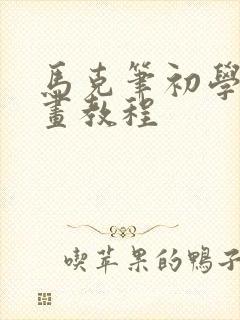 馬克筆初學
畫教程
喫苹果的鴨子